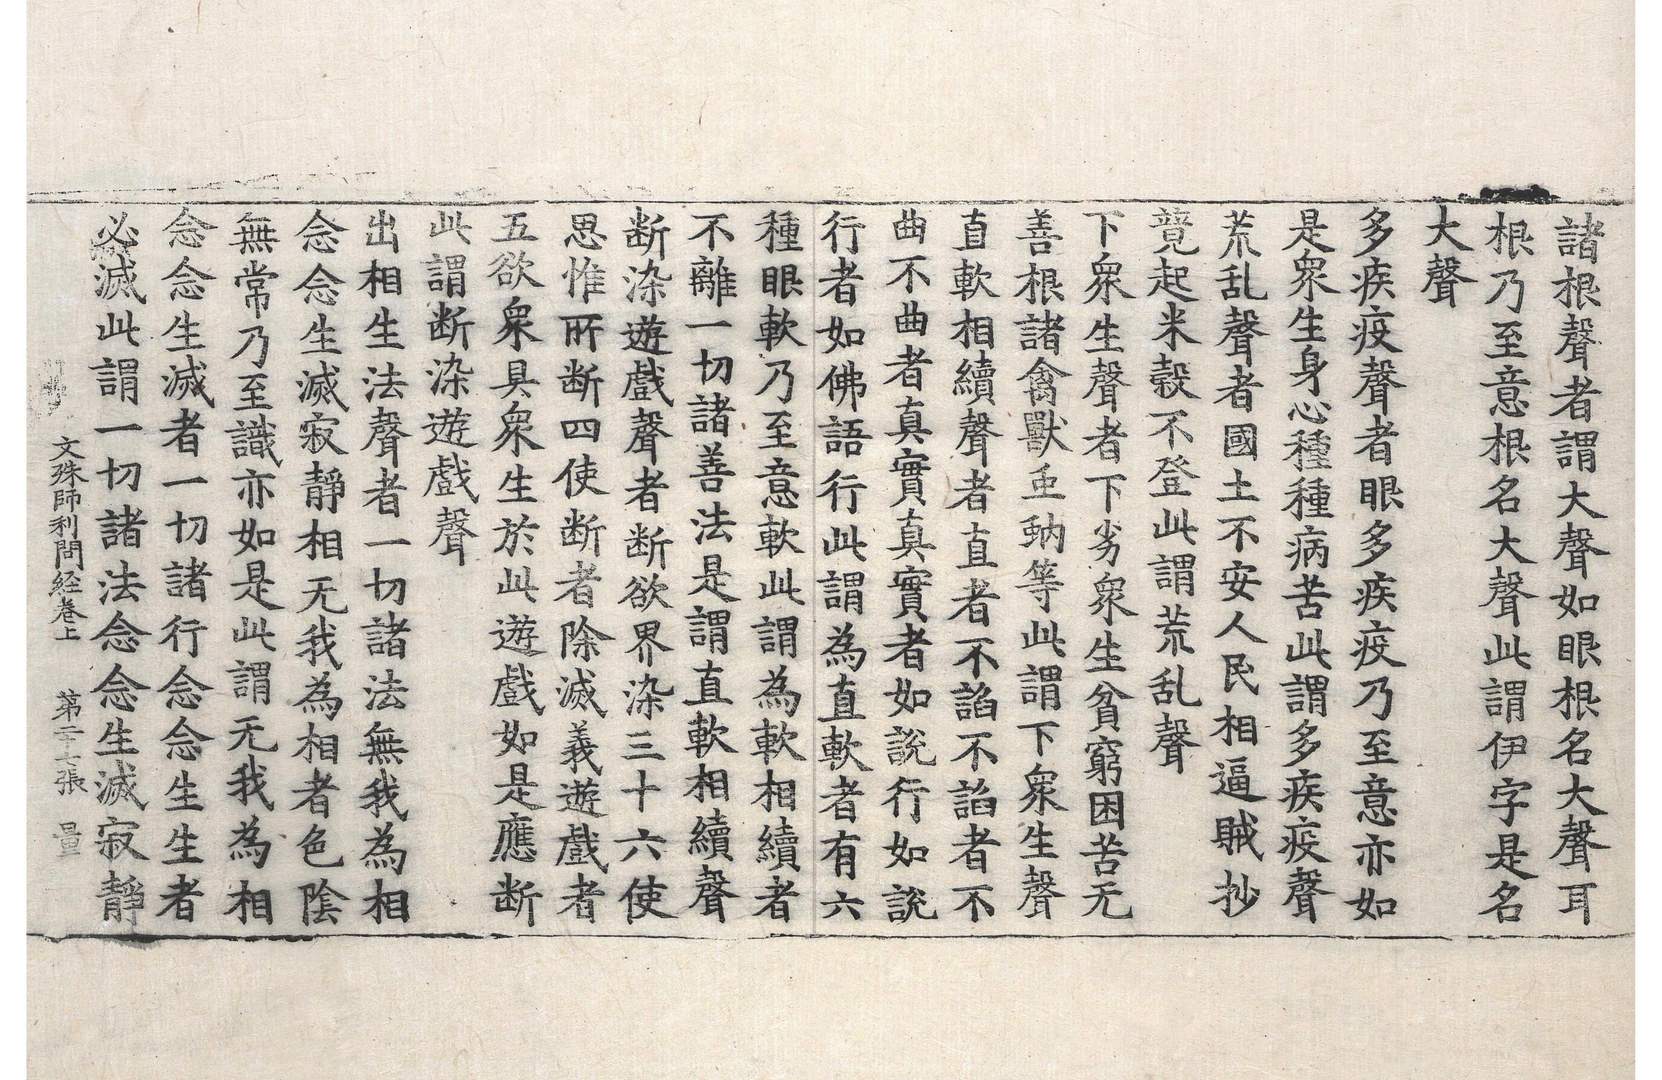 諸根聲者謂大聲如眼根名大聲耳
根乃至意根名大聲此謂伊字是名
大聲
多疾疫聲者眼多疾疫乃至意亦如
是衆生身心種種病苦此謂多疾疫聲
荒乱聲者國土不安人民相逼賊抄
竟起米穀不登此謂荒乱聲
下衆生聲者下劣衆生貧窮困苦无
善根諸禽獸䖝蚋等此謂下衆生聲
直軟相續聲者直者不諂不諂者不
曲不曲者真實真實者如說行如說
行者如佛語行此謂為直軟者有六
種眼軟乃至意軟此謂為軟相續者
不離一切諸善法是謂直軟相續聲
断染遊戲聲者断欲界染三十六使
思惟所断四使断者除滅義遊戲者
五欲衆具衆生於此遊戲如是應断
此謂断染遊戲聲
出相生法聲者一切諸法無我為相
念念生滅寂靜相无我為相者色陰
無常乃至識亦如是此謂无我為相
念念生滅者一切諸行念念生生者
必滅此謂一切諸法念念生滅寂靜
文殊師利問経卷上 第二十七張 量